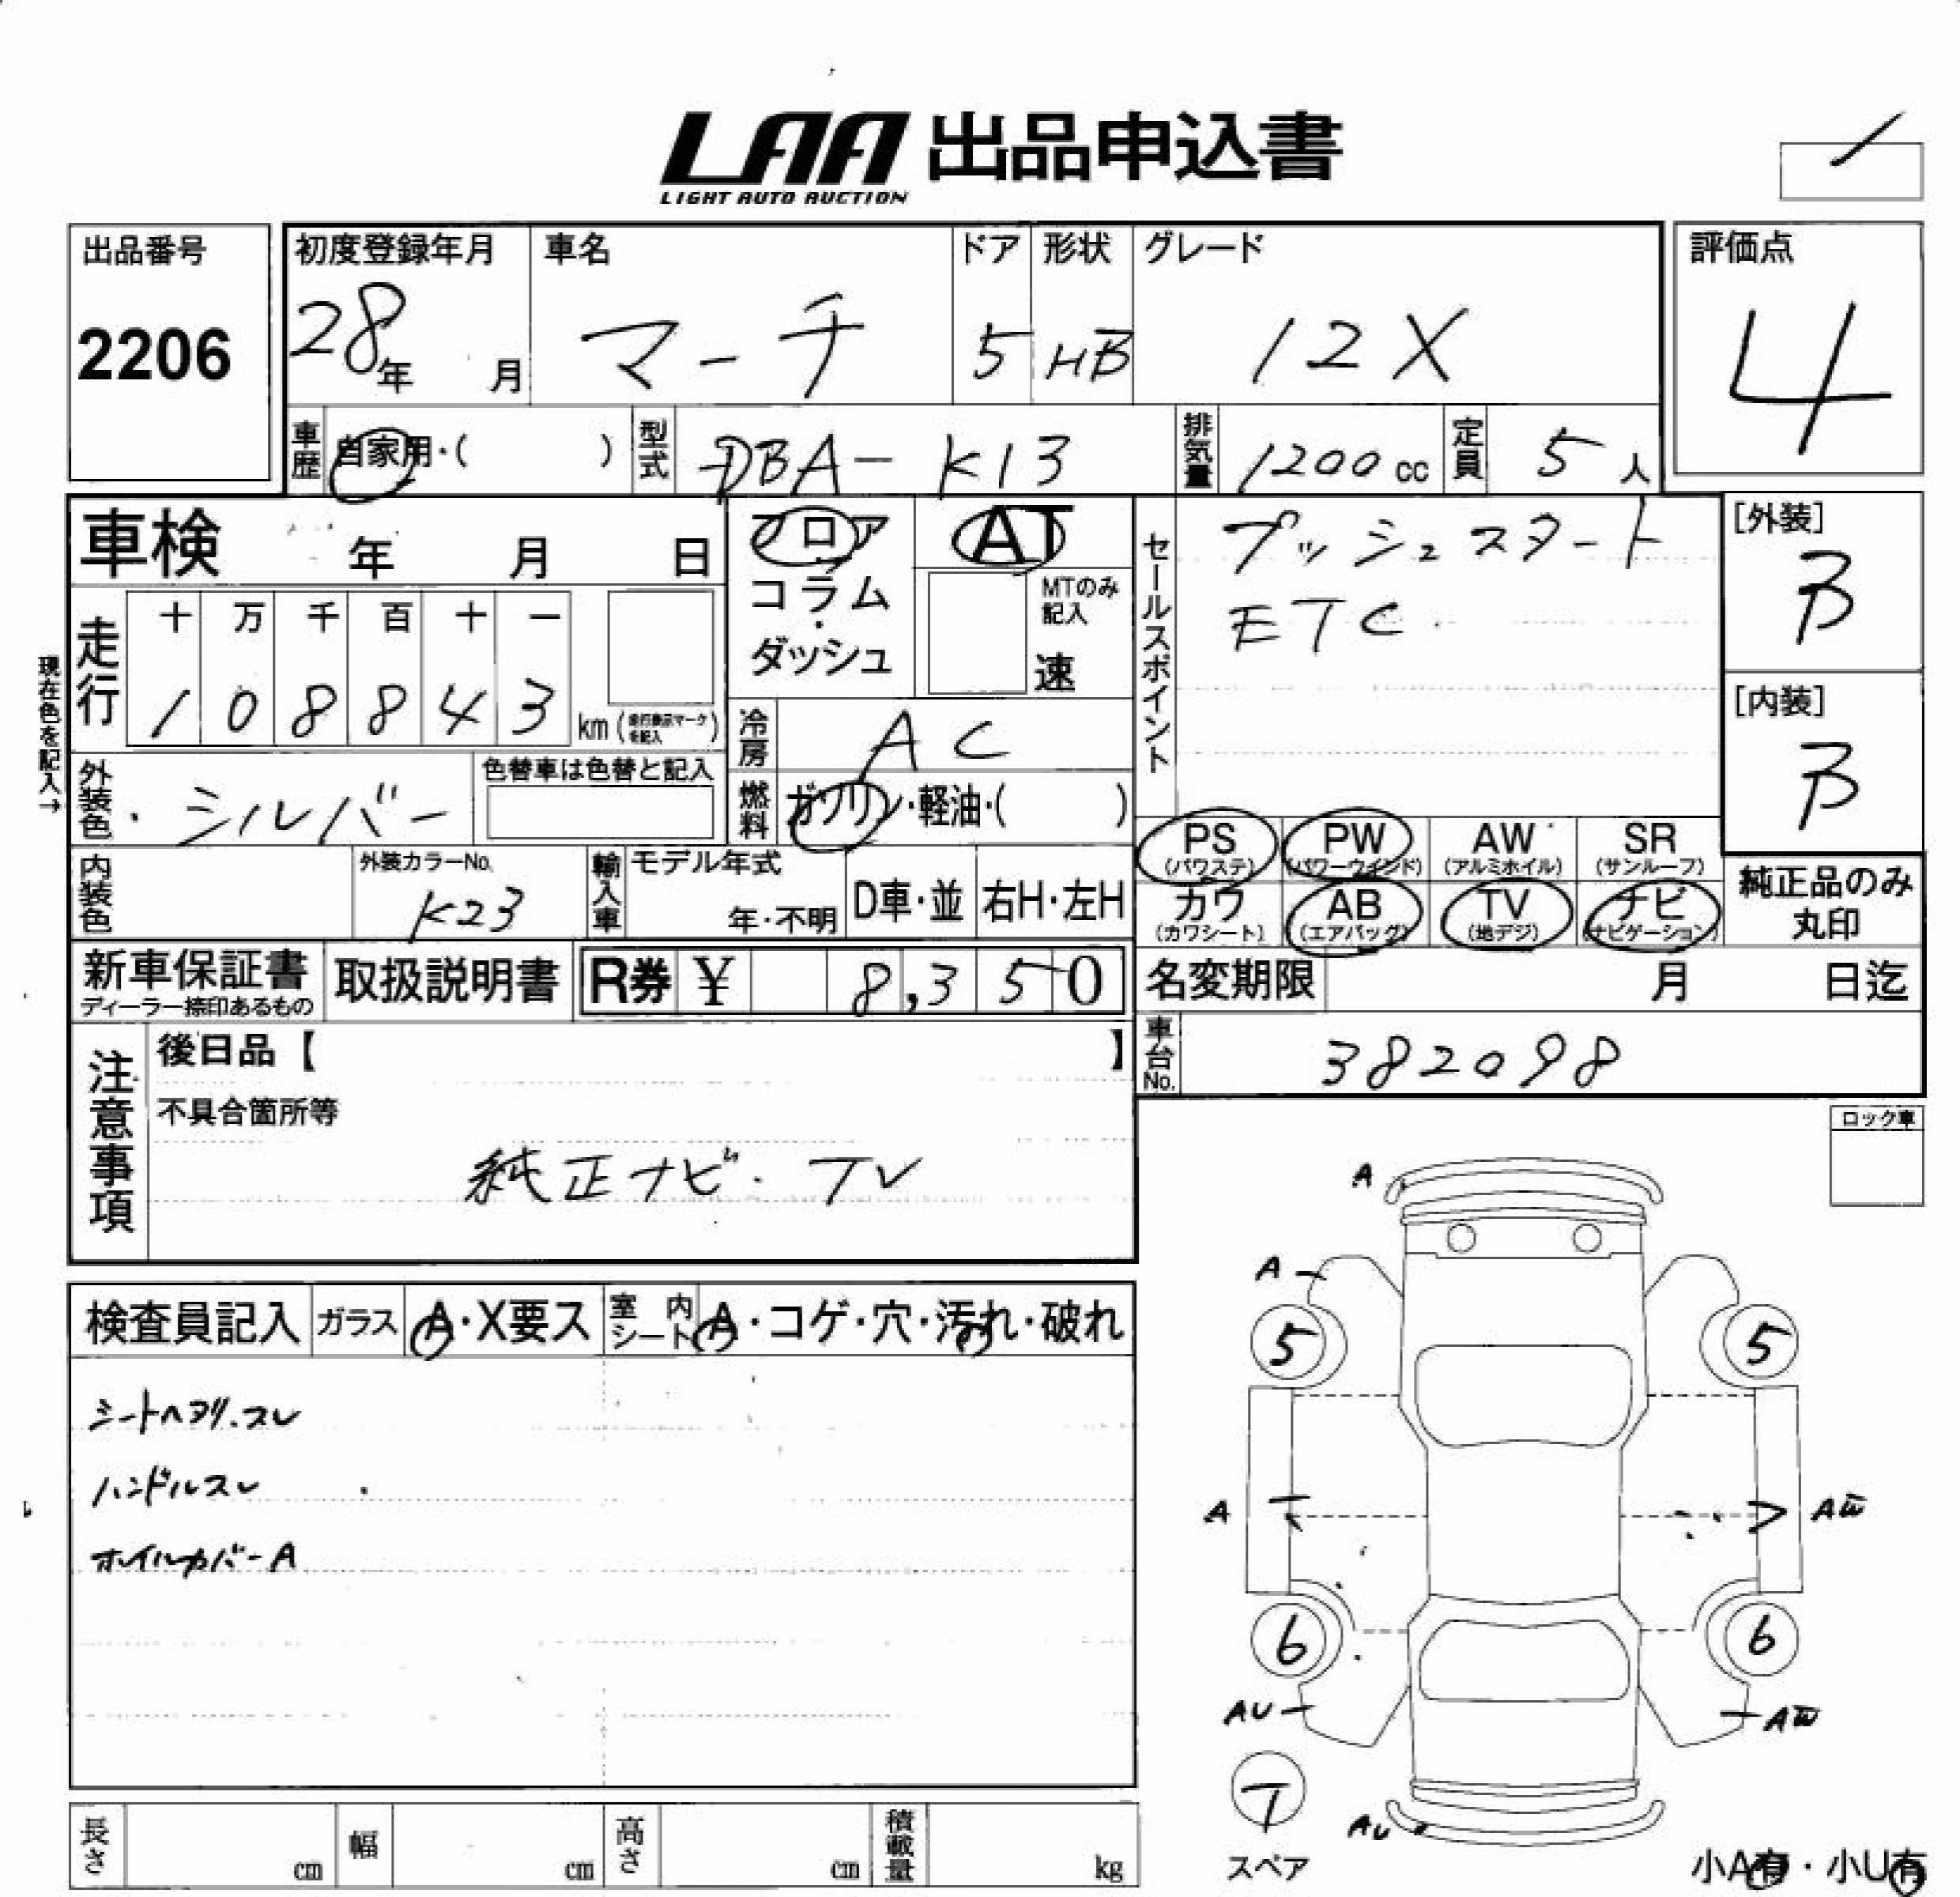 LAA 出品申込書
LIGHT AUTO AUCTION
出品番号
2206
初度登録年月
28年 月
車名
マーチ
ドア
5
形状
HB
グレード
12X
評価点
4
車歴 自家用・( )
型式 DBA-K13
排気量 1200cc
定員 5人
車検 年 月 日
フロア・コラム・ダッシュ
AT
MTのみ記入
速
セールスポイント
プッシュスタート
ETC
[外装]
B
[内装]
B
現在色を記入→
走行
十 万 千 百 十 一
1 0 8 8 4 3 km
冷房 AC
外装色 シルバー
色替車は色替と記入
燃料 ガソリン・軽油・( )
PS (パワステ)
PW (パワーウィンド)
AW (アルミホイル)
SR (サンルーフ)
カワ (カワシート)
AB (エアバッグ)
TV (地デジ)
ナビ (ナビゲーション)
純正品のみ丸印
内装色
外装カラーNo.
K23
輸入車
モデル年式
年・不明
D車・並
右H・左H
新車保証書
ディーラー捺印あるもの
取扱説明書
R券 ¥ 8,350
名変期限 月 日迄
車台No. 382098
注意事項
後日品【 】
不具合箇所等
純正ナビ・TV
ロック車
検査員記入
ガラス A・X要ス
室内シート A・コゲ・穴・汚れ・破れ
シートヘタリ.スレ
ハンドルスレ
ホイルカバーA
A
A
5 5
A
6 6
AU
AU
スペア
小A有・小U有
長さ cm
幅 cm
高さ cm
積載量 kg